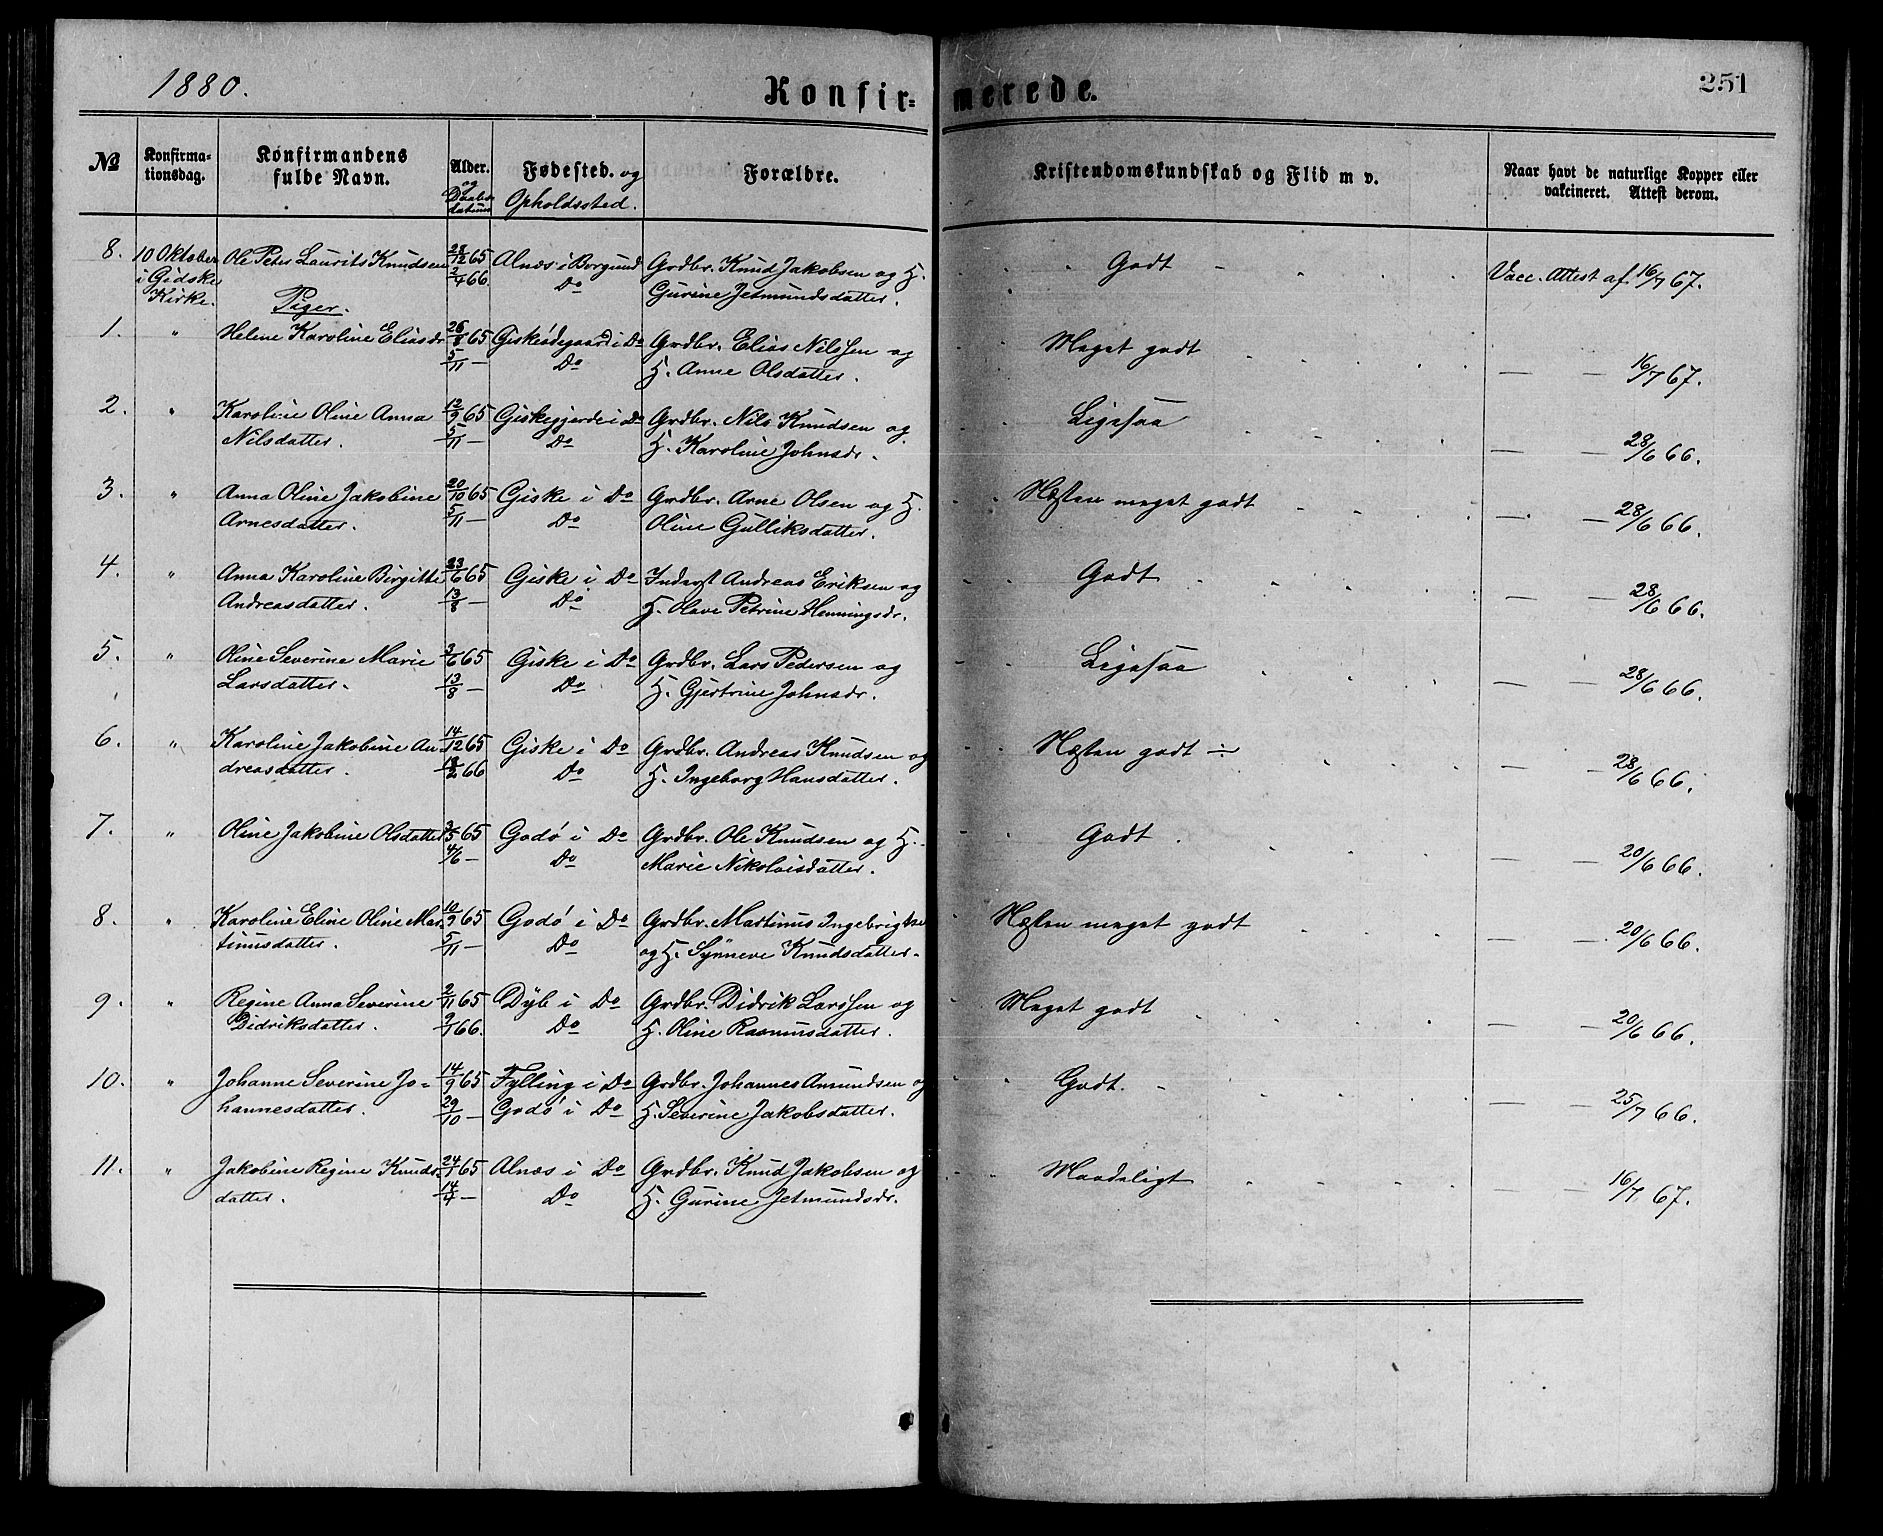 1880.
Konfirmerede.
251
No
Konfirmationsdag.
Konfirmandens fulde Navn.
Alder. og Daabsdatum
Fødested. og Opholdssted.
Forældre.
Kristendomskundskab og Flid m v.
Naar havt de naturlige Kopper eller vakcineret. Attest derom.
8. 10 Oktober Ole Peter Laurits Knudsen 28/12 65 Alnæs i Borgund Grdbr. Knud Jakobsen og H. Godt Vacc. Attest af 16/7 67.
i Gidske Kirke. 2/4 66 Do Gurine Jetmundsdatter.
Piger.
1. " Helene Karoline Eliasdr 26/8 65 Giskeødegaard i Do Grdbr. Elias Nilssen og Meget godt — — 16/7 67.
5/11 — Do H. Anne Olsdatter.
2. " Karoline Oline Anna 12/9 65 Giskegjerde i Do Grdbr. Nils Knudsen og Ligesaa — — 28/6 66.
Nilsdatter. 5/11 — Do H. Karoline Johnsdr.
3. " Anna Oline Jakobine 20/10 65 Giske i Do Grdbr. Arne Olsen og H. Næsten meget godt — — 28/6 66.
Arnesdatter. 5/11 — Do Oline Gulliksdatter.
4. " Anna Karoline Birgitte 23/6 65 Giske i Do Inderst Andreas Eriksen og Godt — — 28/6 66.
Andreasdatter. 13/8 — Do H. Olave Petrine Henningsdr.
5. " Oline Severine Marie 3/6 65 Giske i Do Grdbr. Lars Pedersen og Ligesaa — — 28/6 66.
Larsdatter. 13/8 — Do H. Gjertrine Johnsdr.
6. " Karoline Jakobine An 14/12 65 Giske i Do Grdbr. Andreas Knudsen og Næsten godt ÷ — — 28/6 66.
dreasdatter. 18/2 66 Do H. Ingeborg Hansdatter.
7. " Oline Jakobine Olsdatter 3/5 65 Godø i Do Grdbr. Ole Knudsen og H. Godt — — 20/6 66.
4/6 — Do Marie Nikolaisdatter.
8. " Karoline Eline Oline Mar- 10/9 65 Godø i Do Grdbr. Martinus Ingebrigtsen Næsten meget godt — — 20/6 66.
tinusdatter. 5/11 — Do og H. Synneve Knudsdatter.
9. " Regine Anna Severine 2/11 65 Dyb i Do Grdbr. Didrik Larssen og Meget godt — — 20/6 66.
Didriksdatter. 9/1 66. Do H. Oline Rasmusdatter.
10. " Johanne Severine Jo- 14/9 65 Fylling i Do Grdbr. Johannes Amundsen og Godt. — — 25/7 66.
hannesdatter. 29/10 — Godø i Do H. Severine Jakobsdatter.
11. " Jakobine Regine Knuds- 24/1 65 Alnæs i Do Grdbr. Knud Jakobsen og Maadeligt — — 16/7 67.
datter. 14/4 — Do H. Gurine Jetmundsdr.